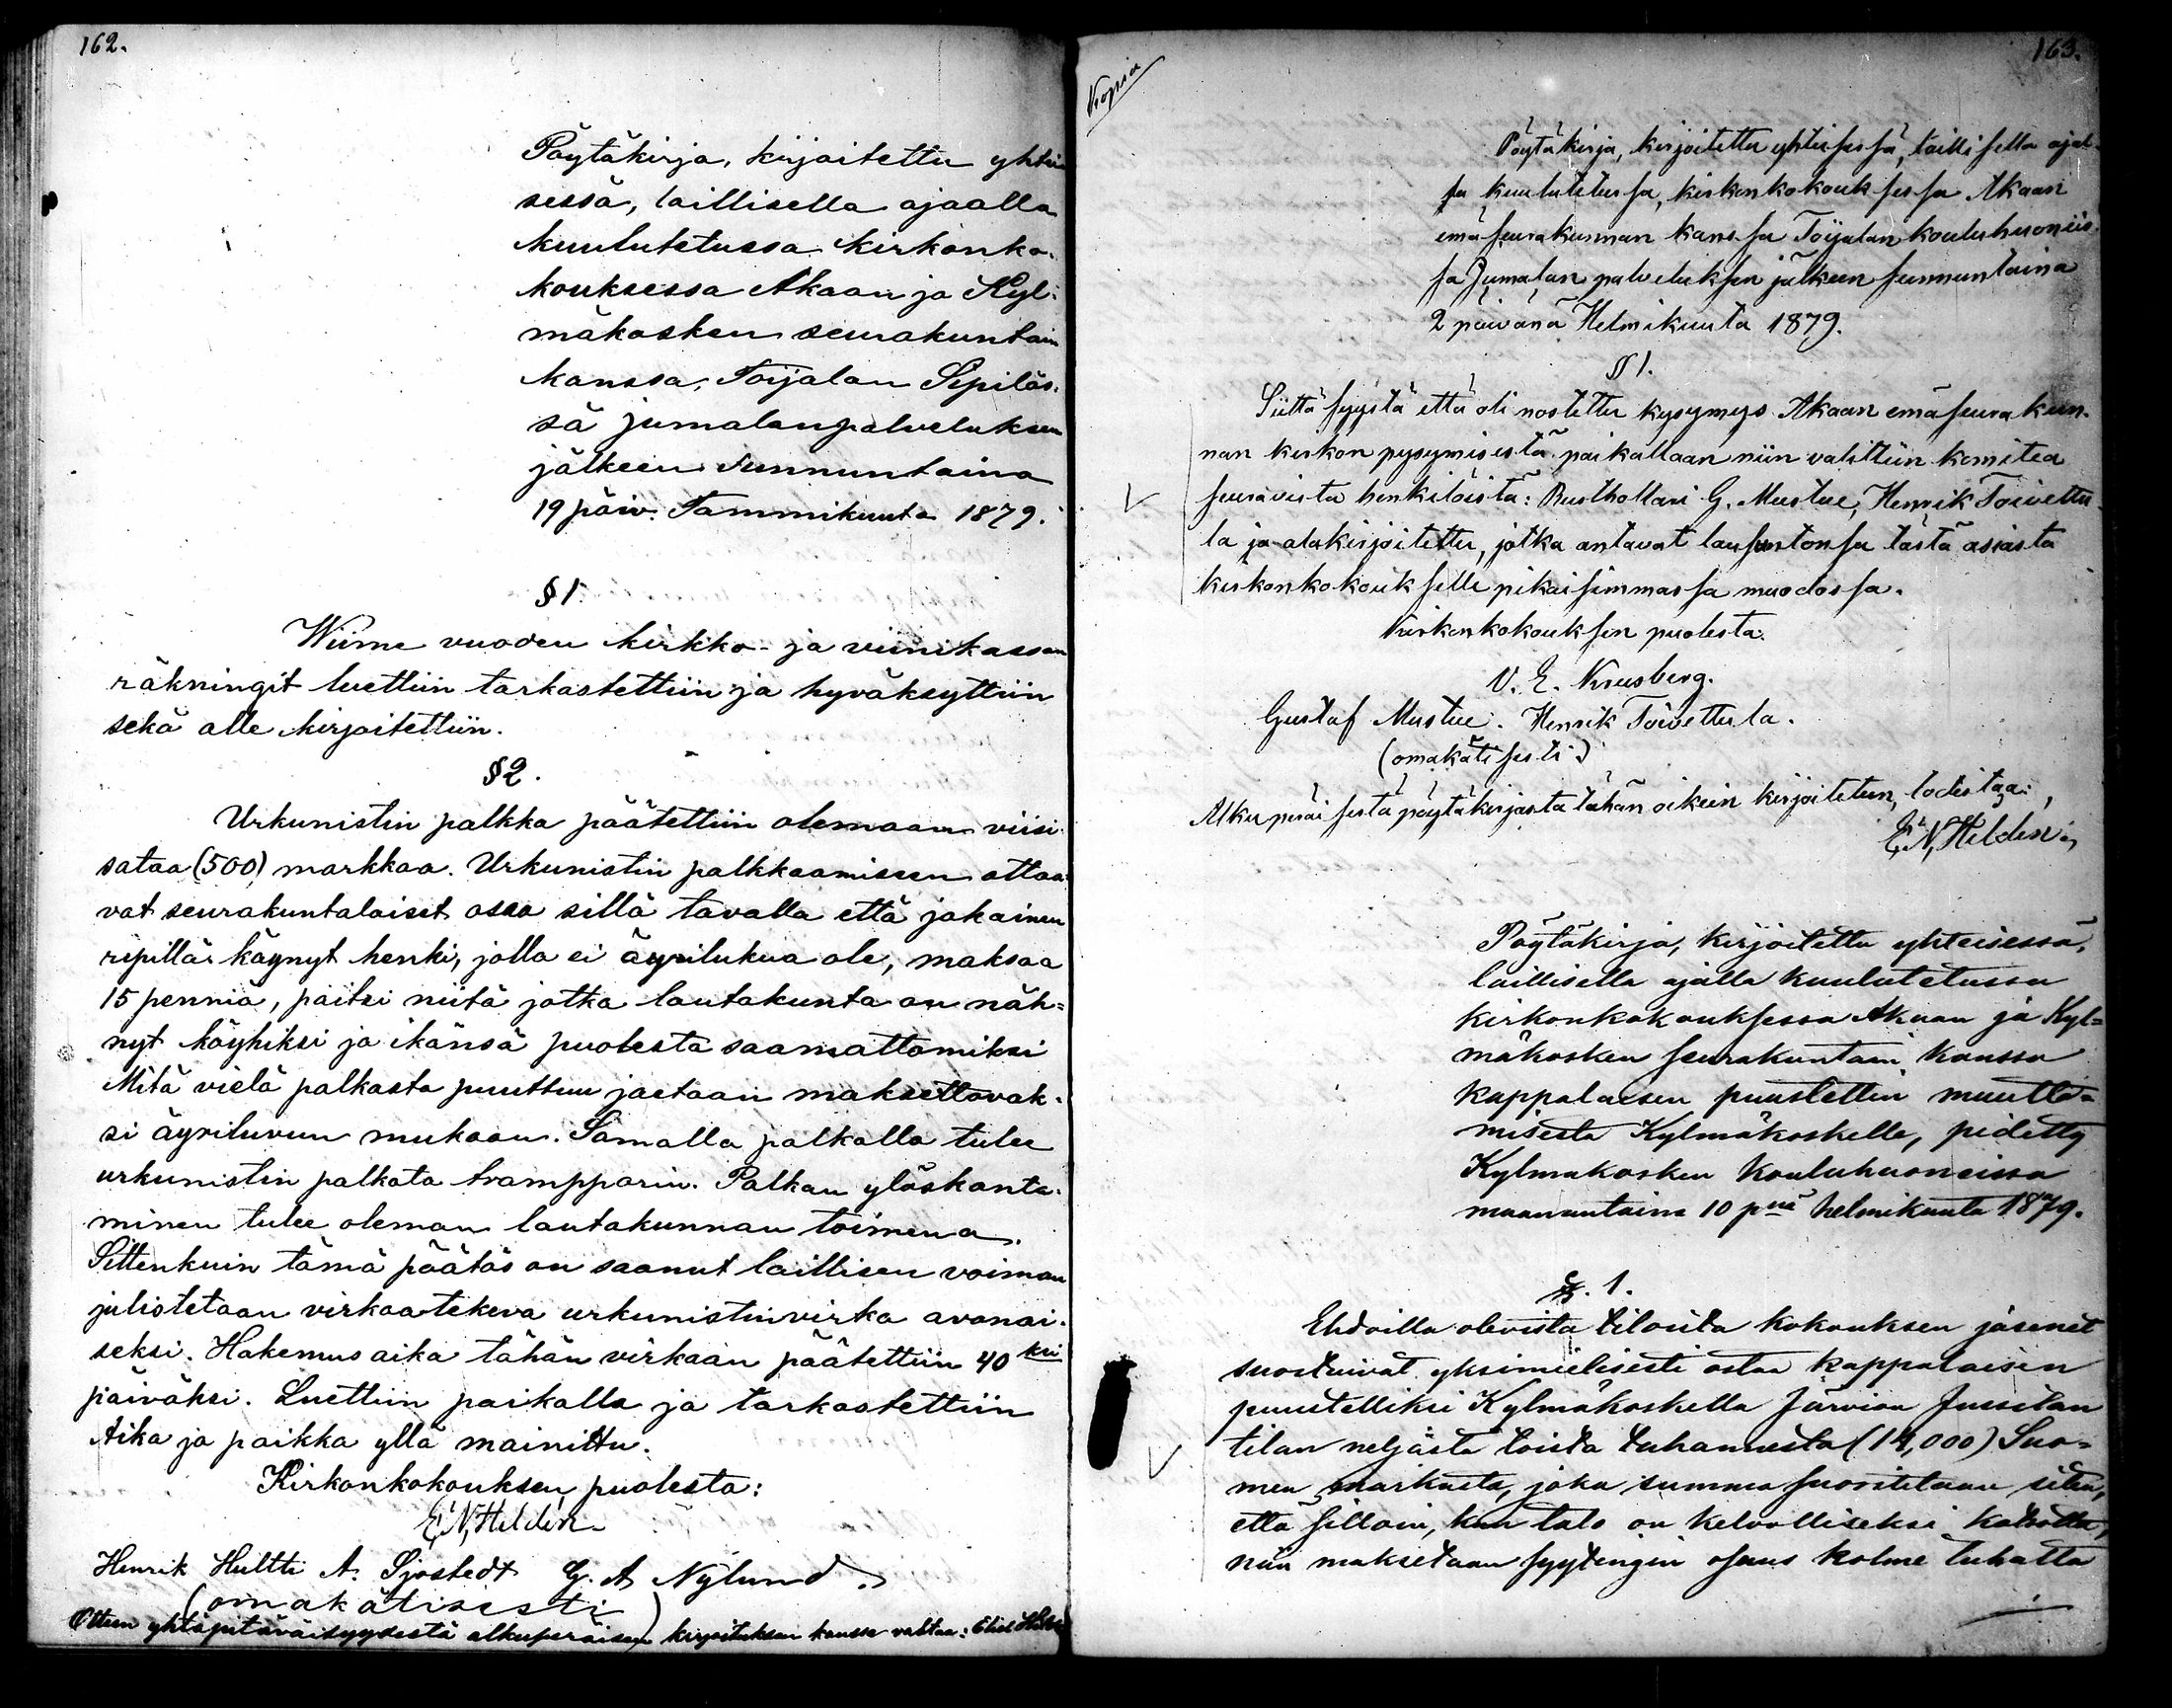 162.
Pöytäkirja, kirjoitettu yhtei
sessä, laillisella ajaalla
kuulutetussa kirkonko-
kouksessa Akaan ja Kyl-
mäkosken seurakuntain
kanssa, Toijalan Sepiläs-
sä jumalanpalveluksen
jälkeen sunnuntaina
19 päiv. Tammikuuta 1879.
§ 1.
Wiime vuoden kirkko- ja viinikassan
räkningit luettiin tarkastettiin ja hyväksyttiin
sekä alle kirjoitettiin.
§ 2.
Urkunistin palkka päätettiin olemaan viisi-
sataa (500) markkaa. Urkunistin palkkaamiseen ottaa-
vat seurakuntalaiset osaa sillä tavalla että jokainen
ripillä käynyt henki, jolla ei äyrilukua ole, maksaa
15 penniä, paitsi niitä jotka lautakunta on näh=
nyt köyhiksi ja ikänsä puolesta saamattomiksi
Mitä vielä palkasta puuttuu jaetaan maksettavak-
si äyriluvun mukaan. Samalla palkalla tulee
urkunistin palkata trampparin. Palkan ylöskanta-
minen tulee oleman lautakunnan toimena.
Sittenkuin tämä päätös on saanut laillisen voiman
julistetaan virkaatekeva urkunistinvirka avonai-
seksi. Hakemus aika tähän virkaan päätettiin 40 ksi
päiväksi. Luettiin paikalla ja tarkastettiin
Aika ja paikka yllä mainittu.
Kirkonkokouksen puolesta:
E. N. Heldén
Henrik Hultti A. Sjöstedt G. A Nylund
(omakätisesti)
Otteen yhtäpitäväisyydestä alkuperäisen kirjoituksen kanssa vakuttaa: Eliel
163.
Kopia
Pöytäkirja, kirjoitettu yhteisessä, laillisella ajal-
la kuulutetussa, kirkonkokouksessa Akaan
emäseurakunnan kanssa Toijalan kouluhuoneis-
sa Jumalan palveluksen jälkeen sunnuntaina
2 päivänä Helmikuuta 1879.
§ 1.
Siittä syystä että oli nostettu kysymys Akaan emäseurakun-
nan kirkon pysymisestä paikallaan niin valittiin komitea
seuravista henkilöistä: Rusthollari G. Mustue, Henrik Toivettu
la ja alakirjoitettu, jotka antavat lausuntonsa tästä asiasta
kirkonkokoukselle pikaisimmassa muodossa.
Kirkonkokouksen puolesta.
V. E. Krusberg.
Gustaf Mustue. Henrik Toivettula.
(omakätisesti)
Alkuperäisestä pöytäkirjasta tähän oikein kirjoitetun, todistaa:
E. N. Heldén
Pöytäkirja, kirjoitettu yhteisessä,
laillisella ajalla kuulutetussa
kirkonkokouksessa Akaan ja Kyl=
mäkosken seurakuntain kanssa
kappalaisen puustellin muutta=
misesta Kylmäkoskelle, pidetty
Kylmäkosken kouluhuoneissa
maanantaina 10 pnä helmikuuta 1879.
§. 1.
Ehdoilla olevista tiloista kokouksen jäsenet
suostuivat yksimielisesti ostaa kappalaisen
puustelliksi Kylmäkoskella Järvion Jussilan
tilan neljästä toista tuhannesta (14,000) Suo=
men markasta, joka summa suoritetaan siten,
että silloin, kun talo on kelvolliseksi katsottu,
niin maksetaan syytengin osaus kolme tuhatta